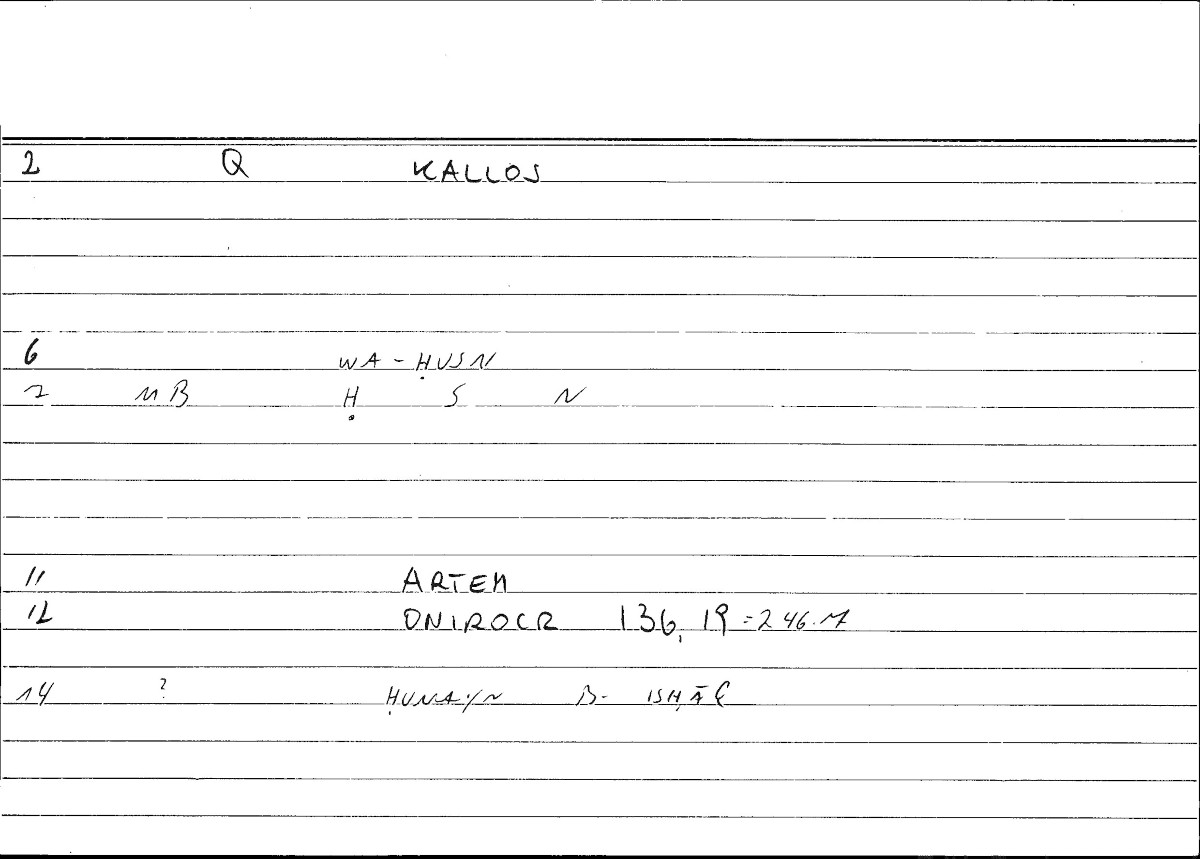 2 Q KALLOS
6 WA-ḤUSN
7 MB Ḥ S N
11 ARTEM
12 ONIROCR 136,19=246.17
14 ? ḤUNAYN B- ISḤĀQ